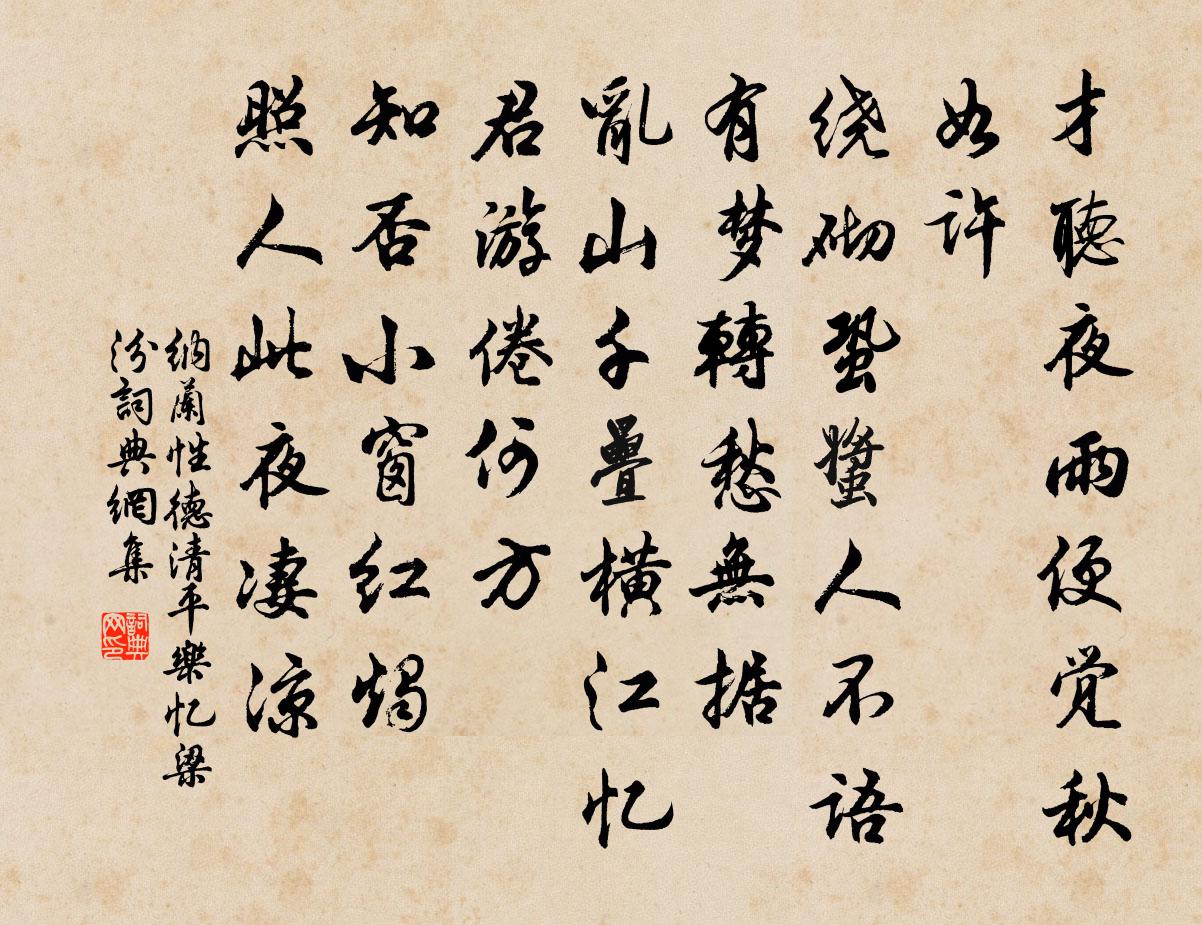 才聽夜雨便觉秋
如许
绕砌蛩螿人不语
有梦轉愁無据
亂山千疊横江忆
君游倦何方
知否小窗红燭
照人此夜凄凉
納蘭性德清平樂忆梁
汾詞典網集
詞典
网印